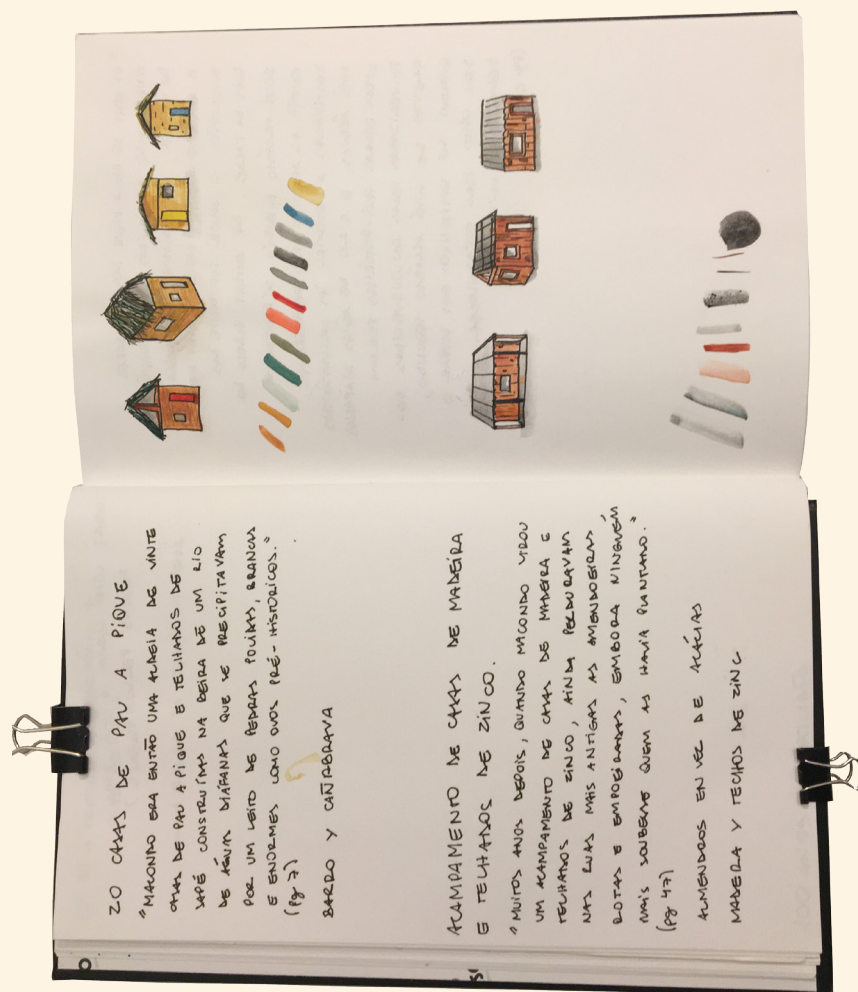 20 CASAS DE PAU A PIQUE
"MACONDO ERA ENTÃO UMA ALDEIA DE VINTE
CASAS DE PAU A PIQUE E TELHADOS DE
SAPÉ CONSTRUÍDAS NA BEIRA DE UM RIO
DE ÁGUAS DIÁFANAS QUE SE PRECIPITAVAM
POR UM LEITO DE PEDRAS POLIDAS, BRANCAS
E ENORMES COMO OVOS PRÉ-HISTÓRICOS."
(pg 7)
BARRO Y CAÑABRAVA
ACAMPAMENTO DE CASAS DE MADEIRA
E TELHADOS DE ZINCO.
"MUITOS ANOS DEPOIS, QUANDO MACONDO VIROU
UM ACAMPAMENTO DE CASAS DE MADEIRA E
TELHADOS DE ZINCO, AINDA PERDURAVAM
NAS RUAS MAIS ANTIGAS AS AMENDOEIRAS
ROTAS E EMPOEIRADAS, EMBORA NINGUÉM
MAIS SOUBESSE QUEM AS HAVIA PLANTADO."
(pg 47)
ALMENDROS EN VEZ DE ACÁCIAS
MADEIRA Y TECHOS DE ZINC